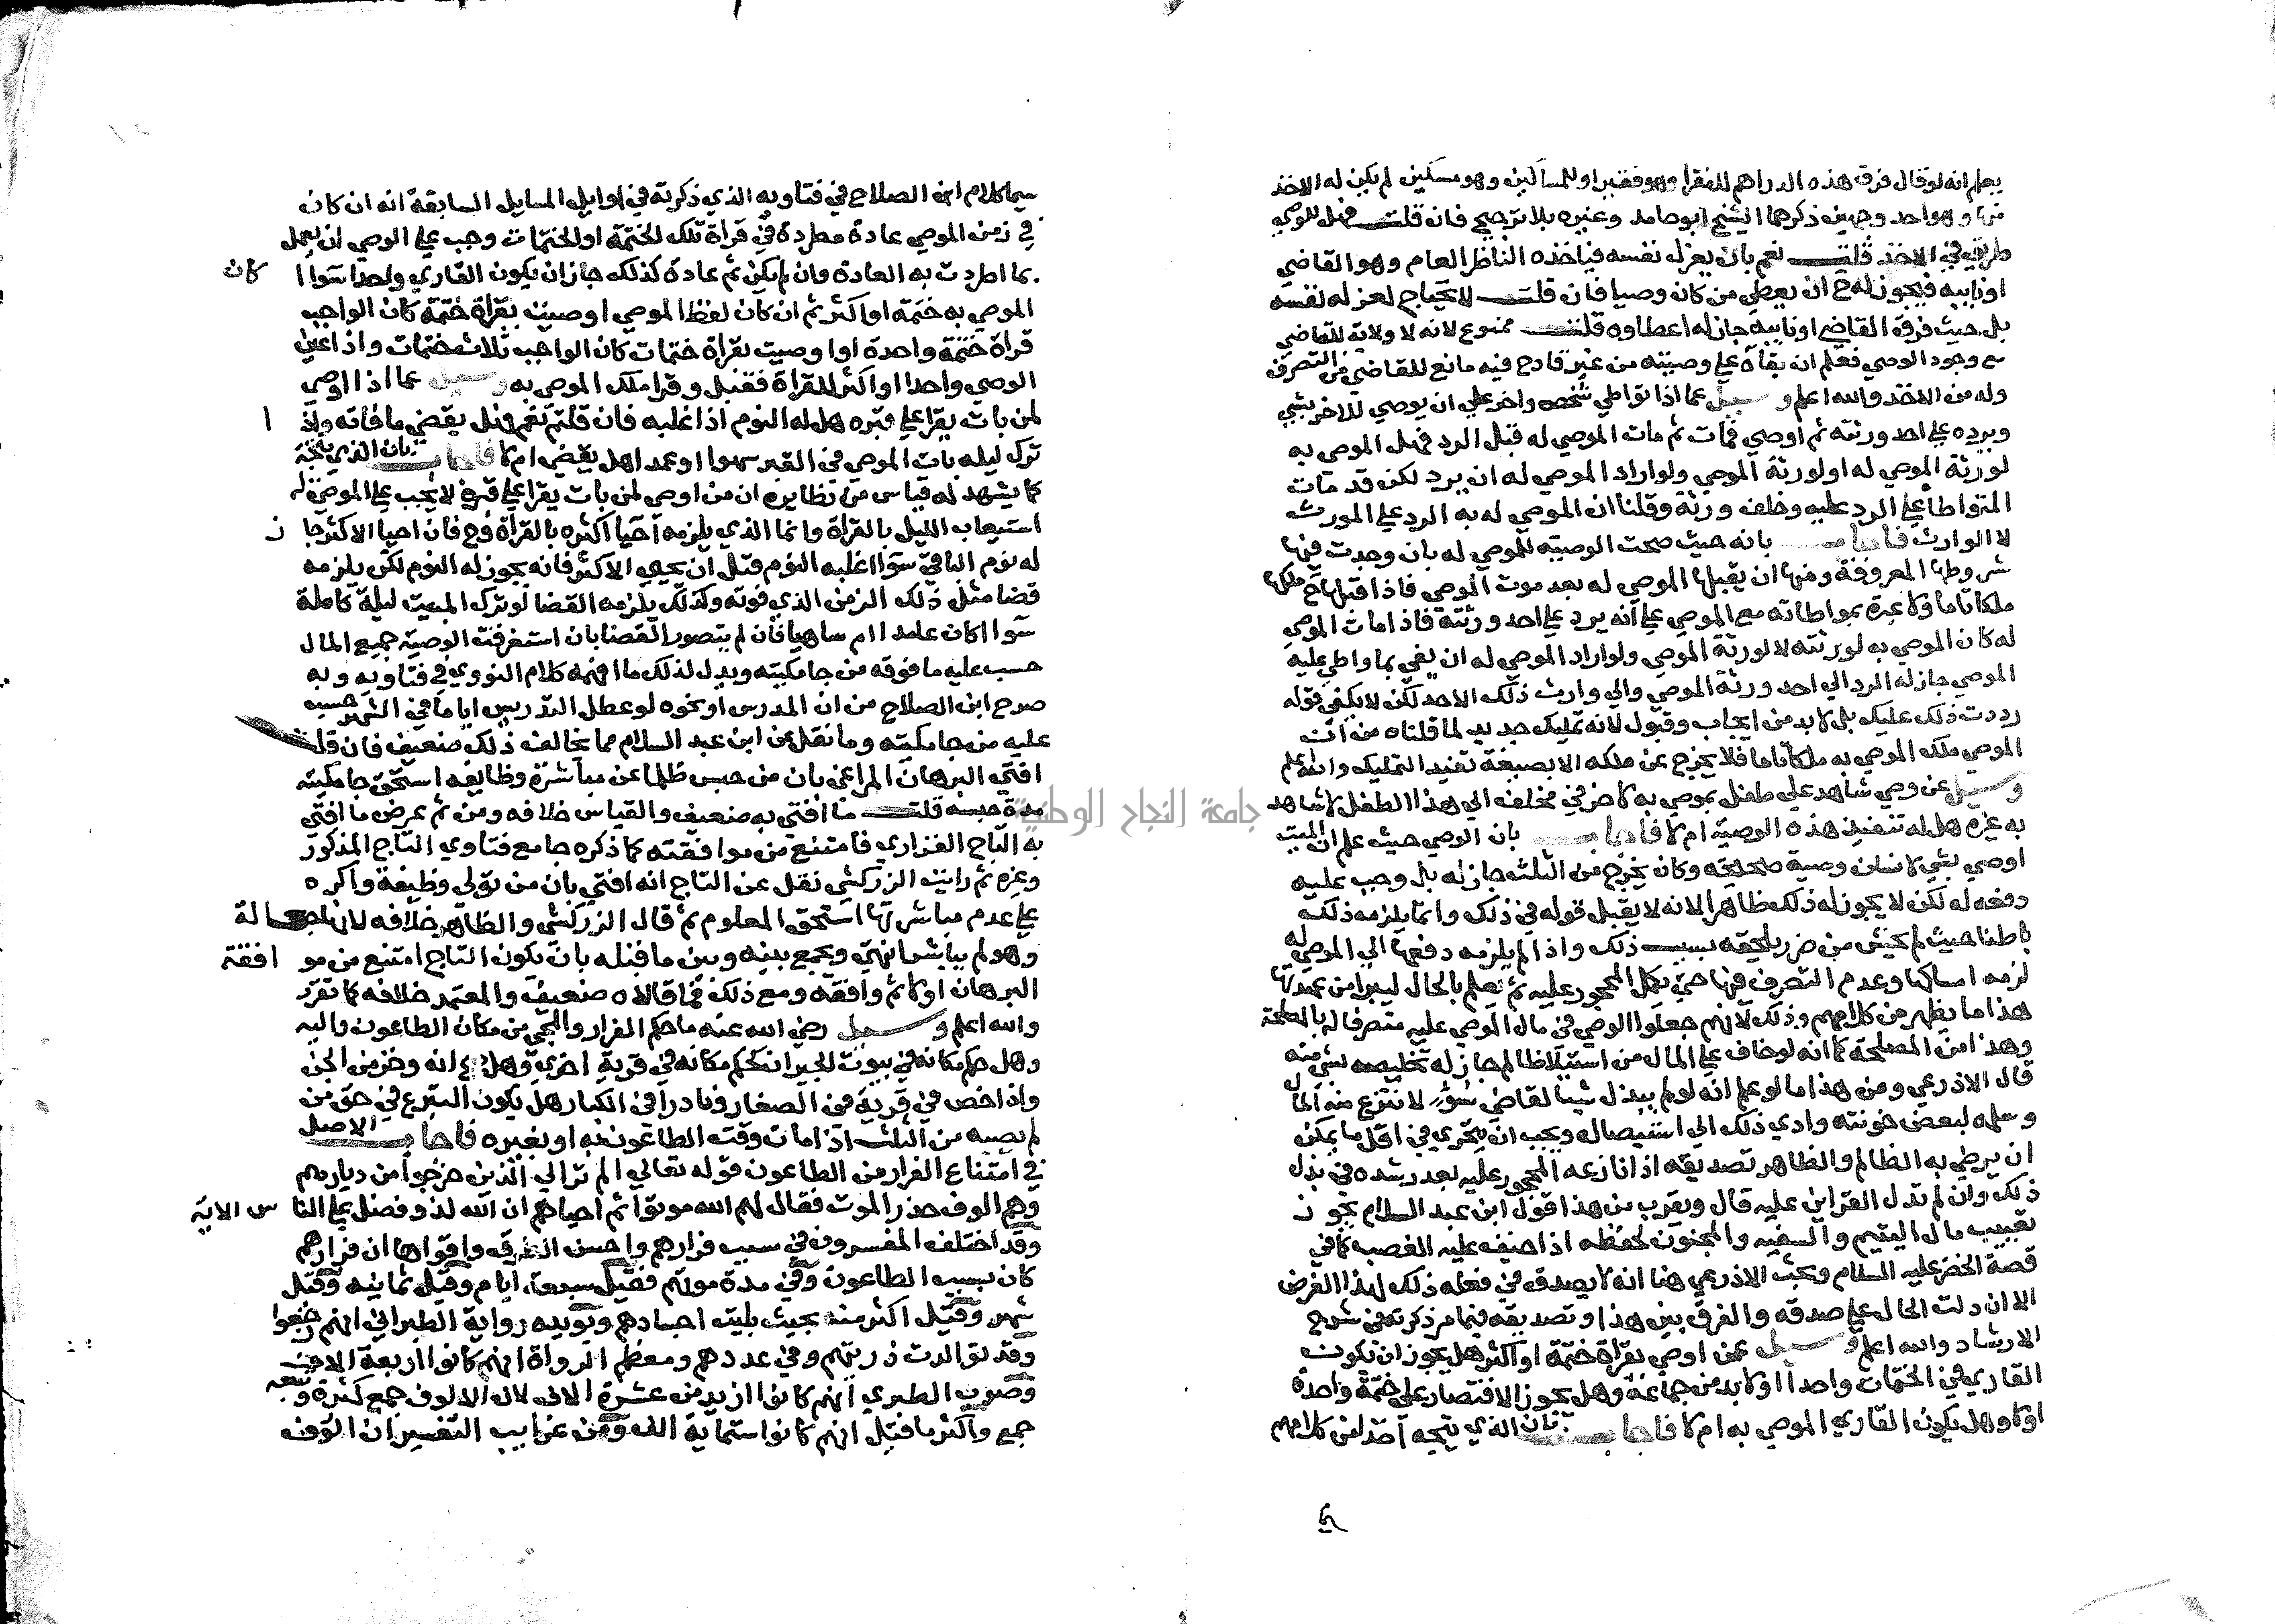 يعلم انه لو قال فرق هذه الدراهم للفقرا وهو فقير او للمساكين وهو مسكين لم يكن له الاخذ
منها وهو احد وجهين ذكرهما الشيخ ابو حامد وغيره بلا ترجيح فان قلت فهل للوصي
طريق في الاخذ قلت نعم بان يعزل نفسه فياخذه الناظر العام وهو القاضي
او نايبه فيجوز له ح ان يعطي من كان وصيا فان قلت لا يحتاج لعزله نفسه
بل حيث فرق القاضي او نايبه جاز له اعطاوه قلت ممنوع لانه لا ولاية للقاضي
مع وجود الوصي فعلم ان بقاه علي وصيته من غير قادح فيه مانع للقاضي من التصرف
وله من الاخذ والله اعلم وسيل عما اذا تواطي شخص واخر علي ان يوصي للاخر بشي
ويرده علي احد ورثته ثم اوصي فمات ثم مات الموصي له قبل الرد فهل الموصي به
لورثة الموصي له او لورثة الموصي ولو اراد الموصي له ان يرد لكن قد مات
المتواطا علي الرد عليه وخلف ورثة وقلنا ان الموصي له به الرد علي المورث
لا الوارث فاجاب بانه حيث صحت الوصية للموصي له بان وجدت فيها
شروطها المعروفة ومنها ان يقبلها الموصي له بعد موت الموصي فاذا قبلها ح ملكها
ملكا تاما ولا عبرة بمواطاته مع الموصي علي انه يرد علي احد ورثته فاذا مات الموصي
له كان الموصي به لورثته لا لورثة الموصي ولو اراد الموصي له ان يفي بما واطي عليه
الموصي جاز له الرد الي احد ورثة الموصي والي وارث ذلك الاحد لكن لا يكفي قوله
رددت ذلك عليك بل لا بد من ايجاب وقبول لانه تمليك جديد لما قلناه من ان
الموصي ملك الموصي به ملكا تاما فلا يخرج عن ملكه الا بصيغة تفيد التمليك والله اعلم
وسيل عن وصي شاهد علي طفل بموصي به لاخر في مخلف الي هذا الطفل لا شاهد
به غيره هل له تنفيذ هذه الوصية ام لا فاجاب بان الوصي حيث علم ان الميت
اوصي بشي لانسان وصية صحيحة وكان يخرج من الثلث جاز له بل وجب عليه
دفعه له لكن لا يجوز له ذلك ظاهرا لانه لا يقبل قوله في ذلك وانما يلزمه ذلك
باطنا حيث لم يخش من ضرر يلحقه بسبب ذلك واذا لم يلزمه دفعها الي الموصي له
لزمه امساكها وعدم التصرف فيها حتي يكمل المحجور عليه ثم يعلم بالحال ليبرا من عهدتها
هذا ما يظهر من كلامهم وذلك لانهم جعلوا الوصي في مال الموصي عليه متصرفا له بالمصلحة
وهذا من المصلحة كما انه لو خاف علي المال من استيلا ظالم جاز له تخليصه بشي منه
قال الاذرعي ومن هذا ما لو علم انه لو لم يبذل شيا لقاضي سوء لانتزع منه المال
وسلمه لبعض خونته وادي ذلك الي استيصاله ويجب ان يتحري في اقل ما يمكن
ان يرضي به الظالم والظاهر تصديقه اذا نازعه المحجور عليه بعد رشده في بذل
ذلك وان لم تدل القراين عليه قال ويقرب من هذا قول ابن عبد السلام يجوز
تعييب مال اليتيم والسفيه والمجنون لحفظه اذا خيف عليه الغصب كما في
قصة الخضر عليه السلام وبحث الاذرعي هنا انه لا يصدق في فعله ذلك لهذا الغرض
الا ان دلت الحال علي صدقه والفرق بين هذا وتصديقه فيما مر ذكرته في شرح
الارشاد والله اعلم وسيل عمن اوصي بقراة ختمة او اكثر هل يجوز ان يكون
القاري في الختمات واحدا او لا بد من جماعة وهل يجوز الاقتصار علي ختمة واحدة
او لا وهل يكون القاري الموصي به ام لا فاجاب بان الذي يتجه اخذا من كلامهم
سيما كلام ابن الصلاح في فتاويه الذي ذكرته في اوايل المسايل السابقة انه ان كان
في زمن الموصي عادة مطردة في قراة تلك الختمة او الختمات وجب علي الوصي ان يعمل
بما اطردت به العادة وان لم يكن ثم عادة كذلك جاز ان يكون القاري واحدا سوا كان
الموصي به ختمة او اكثر ثم ان كان لفظ الموصي اوصيت بقراة ختمة كان الواجب
قراة ختمة واحدة او اوصيت بقراة ختمات كان الواجب ثلاث ختمات واذا عين
الوصي واحدا او اكثر للقراة فقبل وقرا ملك الموصي به وسيل عما اذا اوصي
لمن بات يقرا علي قبره هل له النوم اذا غلبه فان قلتم نعم فهل يقضي ما فاته واذا
ترك ليله بات الموصي في القبر سهوا او عمدا هل يقضي ام لا فاجاب بان الذي يتجه
كما يشهد له قياس من نظايره ان من اوصي لمن بات يقرا علي قبره لا يجب علي الموصي له
استيعاب الليل بالقراة وانما الذي يلزمه احيا اكثره بالقراة وح فان احيا الاكثر جاز
له نوم الباقي سوا اغلبه النوم قبل ان يحيي الاكثر فانه يجوز له النوم لكن يلزمه
قضا مثل ذلك الزمن الذي فوته وكذلك يلزمه القضا لو ترك المبيت ليلة كاملة
سوا اكان عامدا ام ساهيا فان لم يتصور القضا بان استغرقت الوصية جميع المال
حسب عليه ما فوقه من جامكيته ويدل لذلك ما افهمه كلام النووي في فتاويه وبه
صرح ابن الصلاح من ان المدرس او نحوه لو عطل التدريس اياما في الشهر حسب
عليه من جامكيته وما نقل عن ابن عبد السلام مما يخالف ذلك ضعيف فان قلت
افتي البرهان المراغي بان من حبس ظلما عن مباشرة وظايفه استحق جامكيته
مدة حبسه قلت ما افتي به ضعيف والقياس خلافه ومن ثم عرض ما افتي
به التاج الفزاري فامتنع من موافقته كما ذكره جامع فتاوي التاج المذكور
وغيره ثم رايت الزركشي نقل عن التاج انه افتي بان من تولي وظيفة واكره
علي عدم مباشرتها استحق المعلوم ثم قال الزركشي والظاهر خلافه لانها جعالة
وهو لم يباشر انتهي ويجمع بينه وبين ما قبله بان يكون التاج امتنع من موافقة
البرهان اولا ثم وافقه ومع ذلك فما قالاه ضعيف والمعتمد خلافه كما تقرر
والله اعلم وسيل رضي الله عنه ما حكم الفرار والمجي من مكان الطاعون واليه
وهل حكم مكانه في بيوت الجيران كحكم مكانه في قرية اخري وهل صح انه وخز من الجن
واذا خص في قرية في الصغار ونادرا في الكبار هل يكون التبرع في حق من
لم يصبه من الثلث اذا مات وقت الطاعون به او بغيره فاجاب الاصل
في امتناع الفرار من الطاعون قوله تعالي الم تر الي الذين خرجوا من ديارهم
وهم الوف حذر الموت فقال لهم الله موتوا ثم احياهم ان الله لذو فضل علي الناس الاية
وقد اختلف المفسرون في سبب فرارهم واحسن الطرق واقواها ان فرارهم
كان بسبب الطاعون وفي مدة موتهم فقيل سبعة ايام وقيل ثمانيه وقيل
شهر وقيل اكثر منه بحيث بليت اجسادهم ويويده رواية الطبراني انهم رجعوا
وقد توالدت ذريتهم وفي عددهم ومعظم الرواة انهم كانوا اربعة الاف
وصوب الطبري انهم كانوا ازيد من عشرة الاف لان الالوف جمع كثرة
جمع واكثر ما قيل انهم كانوا ستماية الف ومن غرايب التفسير ان الوف
سيما
جامعة النجاح الوطنية